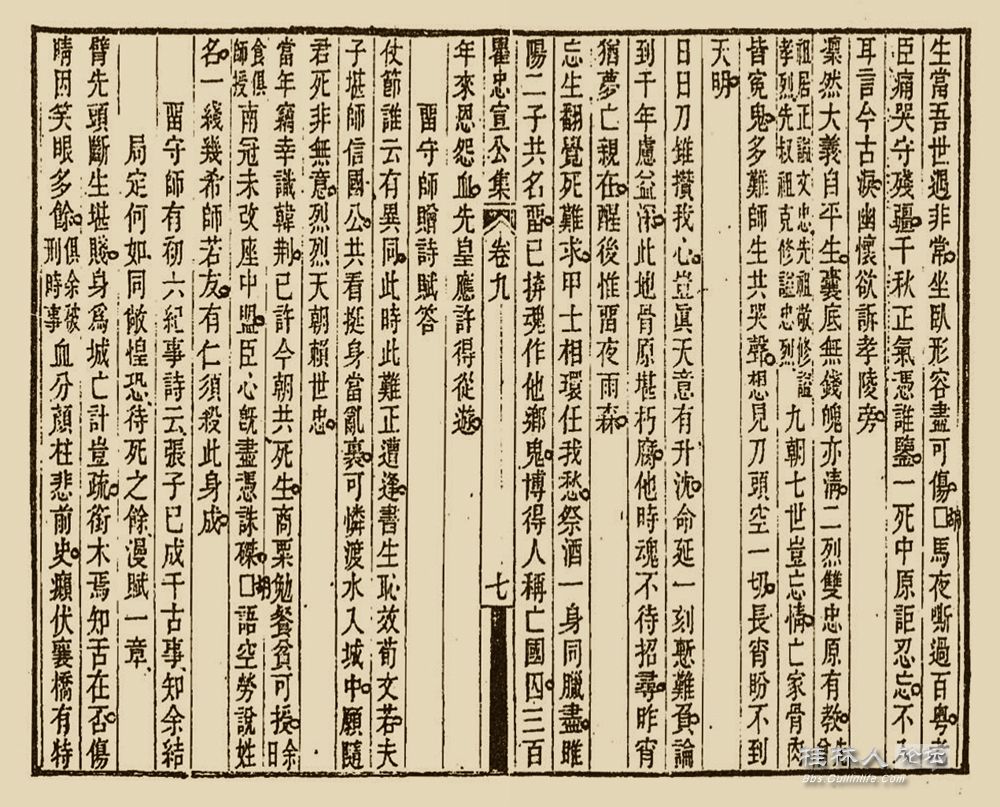 生當吾世遇非常坐臥形容盡可傷□胡馬夜嘶過百粵
臣痛哭守殘疆千秋正氣憑誰鑒一死中原詎忍忘不
耳言今古淚幽懷欲訴孝陵旁
稟然大義自平生囊底無錢魄亦淸二烈雙忠原有敎
祖居正謚文忠先祖敬修謚
孝烈先叔祖克修謚忠烈
九朝七世豈忘情亡家骨肉
皆寃鬼多難師生共哭聲想見刀頭空一切長宵盼不到
天明
日日刀錐攢我心豈眞天意有升沈命延一刻慙難負論
到千年慮益深此地骨原堪朽腐他時魂不待招尋昨宵
猶夢亡親在醒後惟畱夜雨森
忘生翻覺死難求甲士相環任我愁祭酒一身同臘盡睢
陽二子共名畱已拚魂作他鄉鬼博得人稱亡國囚三百
瞿忠宣公集 卷九 七
年來恩怨血先皇應許得從遊
畱守師贈詩賦答
仗節誰云有異同此時此難正遭逢書生恥效荀文若夫
子堪師信國公共看挺身當亂裏可憐渡水入城中願隨
君死非無意烈烈天朝賴世忠
當年竊幸識韓荆已許今朝共死生商粟勉餐貧可授余日
食俱
師授
南冠未改座中盟臣心旣盡憑誅磔□胡語空勞說姓
名一綫幾希師若友有仁須殺此身成
畱守師有初六紀事詩云張子已成千古事知余結
局定何如同敞惶恐待死之餘漫賦一章
臂先頭斷生堪賤身爲城亡計豈疏銜木焉知舌在否傷
睛因笑眼多餘俱余被
刑時事
血分顏柱悲前史癩伏襄橋有特
桂林人论坛
Bbs.Guilinlife.Com